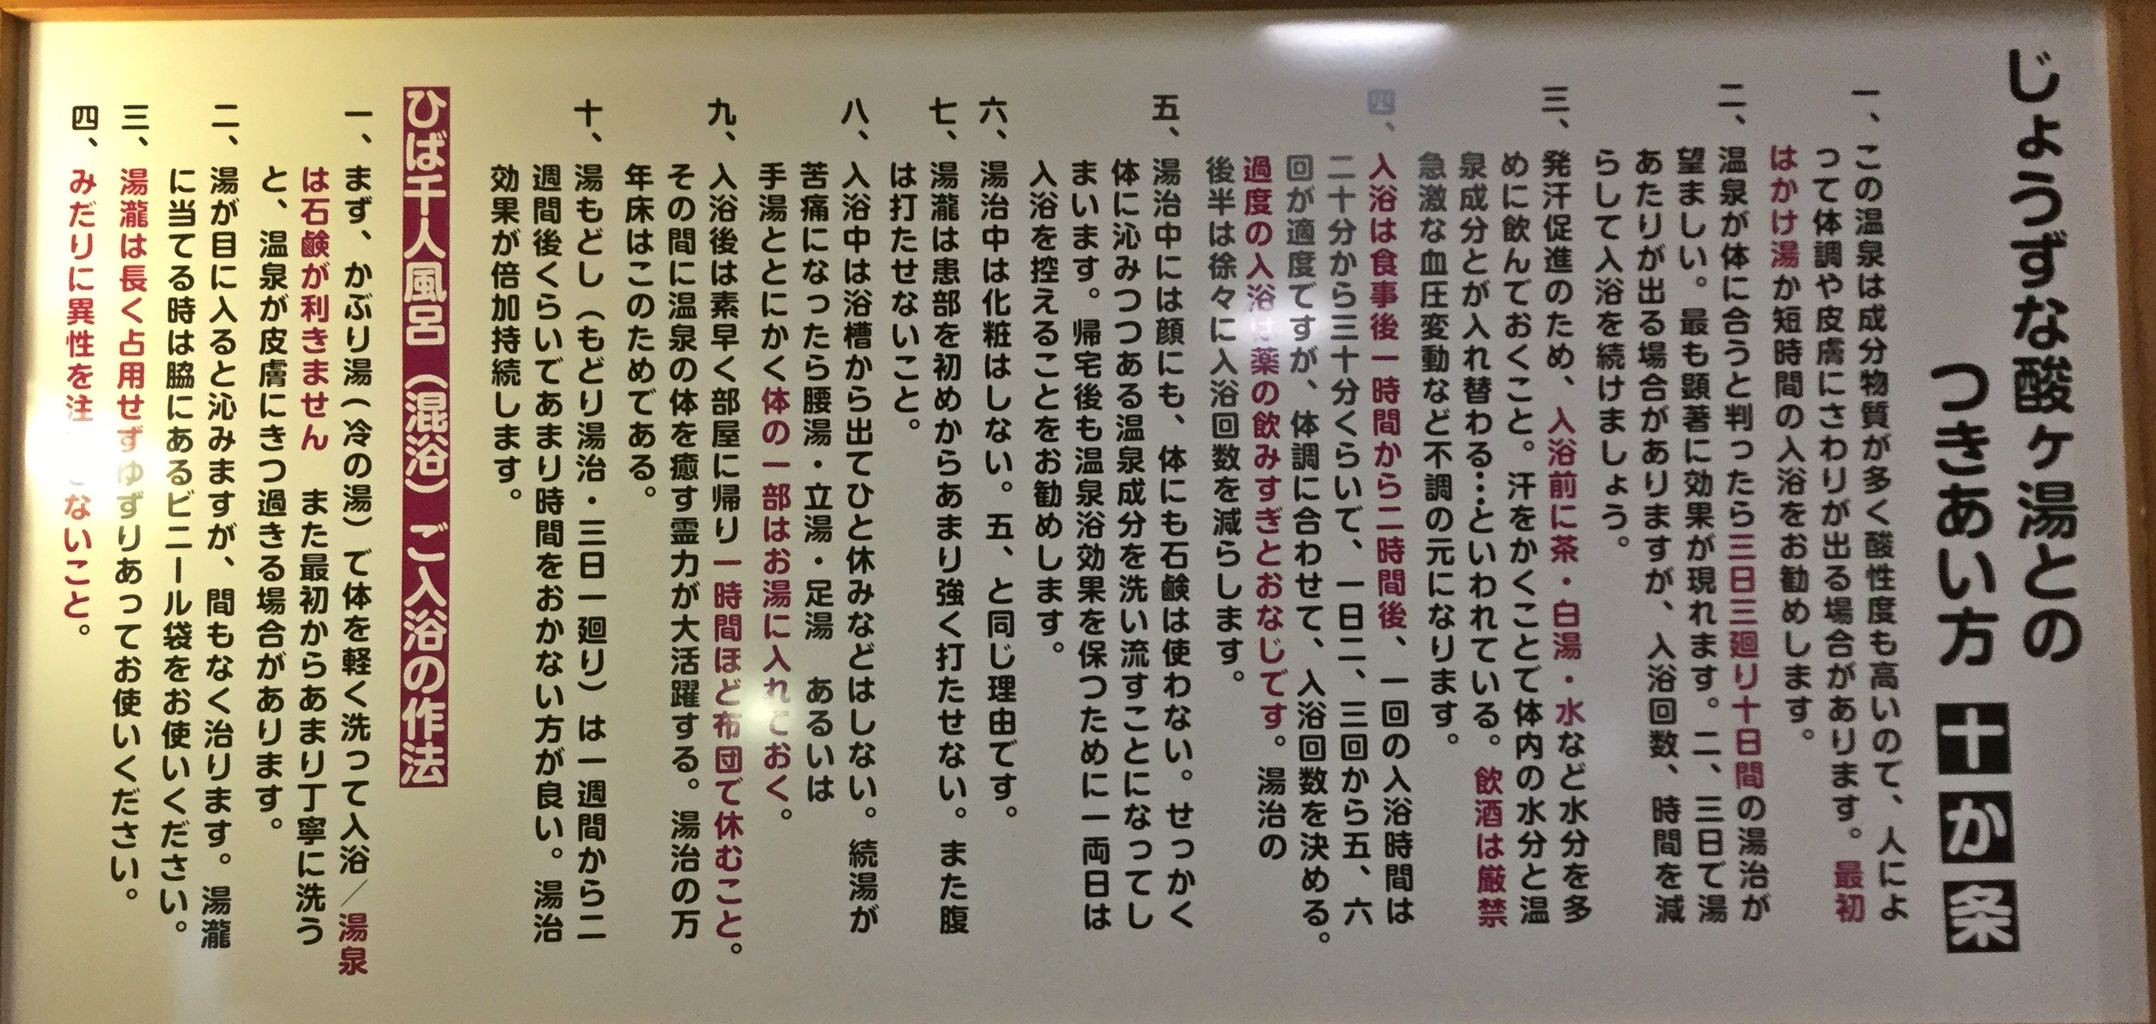 じょうずな酸ヶ湯との
つきあい方 十か条
一、この温泉は成分物質が多く酸性度も高いので、人によ
って体調や皮膚にさわりが出る場合があります。最初
はかけ湯か短時間の入浴をお勧めします。
二、温泉が体に合うと判ったら三日三廻り十日間の湯治が
望ましい。最も顕著に効果が現れます。二、三日で湯
あたりが出る場合がありますが、入浴回数、時間を減
らして入浴を続けましょう。
三、発汗促進のため、入浴前に茶・白湯・水など水分を多
めに飲んでおくこと。汗をかくことで体内の水分と温
泉成分とが入れ替わる…といわれている。飲酒は厳禁
急激な血圧変動など不調の元になります。
四、入浴は食事後一時間から二時間後、一回の入浴時間は
二十分から三十分くらいで、一日二、三回から五、六
回が適度ですが、体調に合わせて、入浴回数を決める。
過度の入浴は薬の飲みすぎとおなじです。湯治の
後半は徐々に入浴回数を減らします。
五、湯治中には顔にも、体にも石鹸は使わない。せっかく
体に沁みつつある温泉成分を洗い流すことになってし
まいます。帰宅後も温泉浴効果を保つために一両日は
入浴を控えることをお勧めします。
六、湯治中は化粧はしない。五、と同じ理由です。
七、湯瀧は患部を初めからあまり強く打たせない。また腹
は打たせないこと。
八、入浴中は浴槽から出てひと休みなどはしない。続湯が
苦痛になったら腰湯・立湯・足湯 あるいは
手湯ととにかく体の一部はお湯に入れておく。
九、入浴後は素早く部屋に帰り一時間ほど布団で休むこと。
その間に温泉の体を癒す霊力が大活躍する。湯治の万
年床はこのためである。
十、湯もどし（もどり湯治・三日一廻り）は一週間から二
週間後くらいであまり時間をおかない方が良い。湯治
効果が倍加持続します。
ひば千人風呂（混浴）ご入浴の作法
一、まず、かぶり湯（冷の湯）で体を軽く洗って入浴／湯泉
は石鹸が利きません また最初からあまり丁寧に洗う
と、温泉が皮膚にきつ過きる場合があります。
二、湯が目に入ると沁みますが、間もなく治ります。湯瀧
に当てる時は脇にあるビニール袋をお使いください。
三、湯瀧は長く占用せずゆずりあってお使いください。
四、みだりに異性を注ないこと。